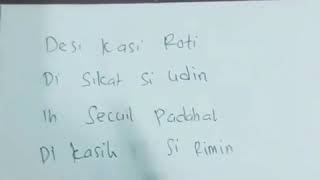 Desi Kasi Roti
Di Sikat Si Udin
Ih Secuil Padahal
Di Kasih Si Rimin